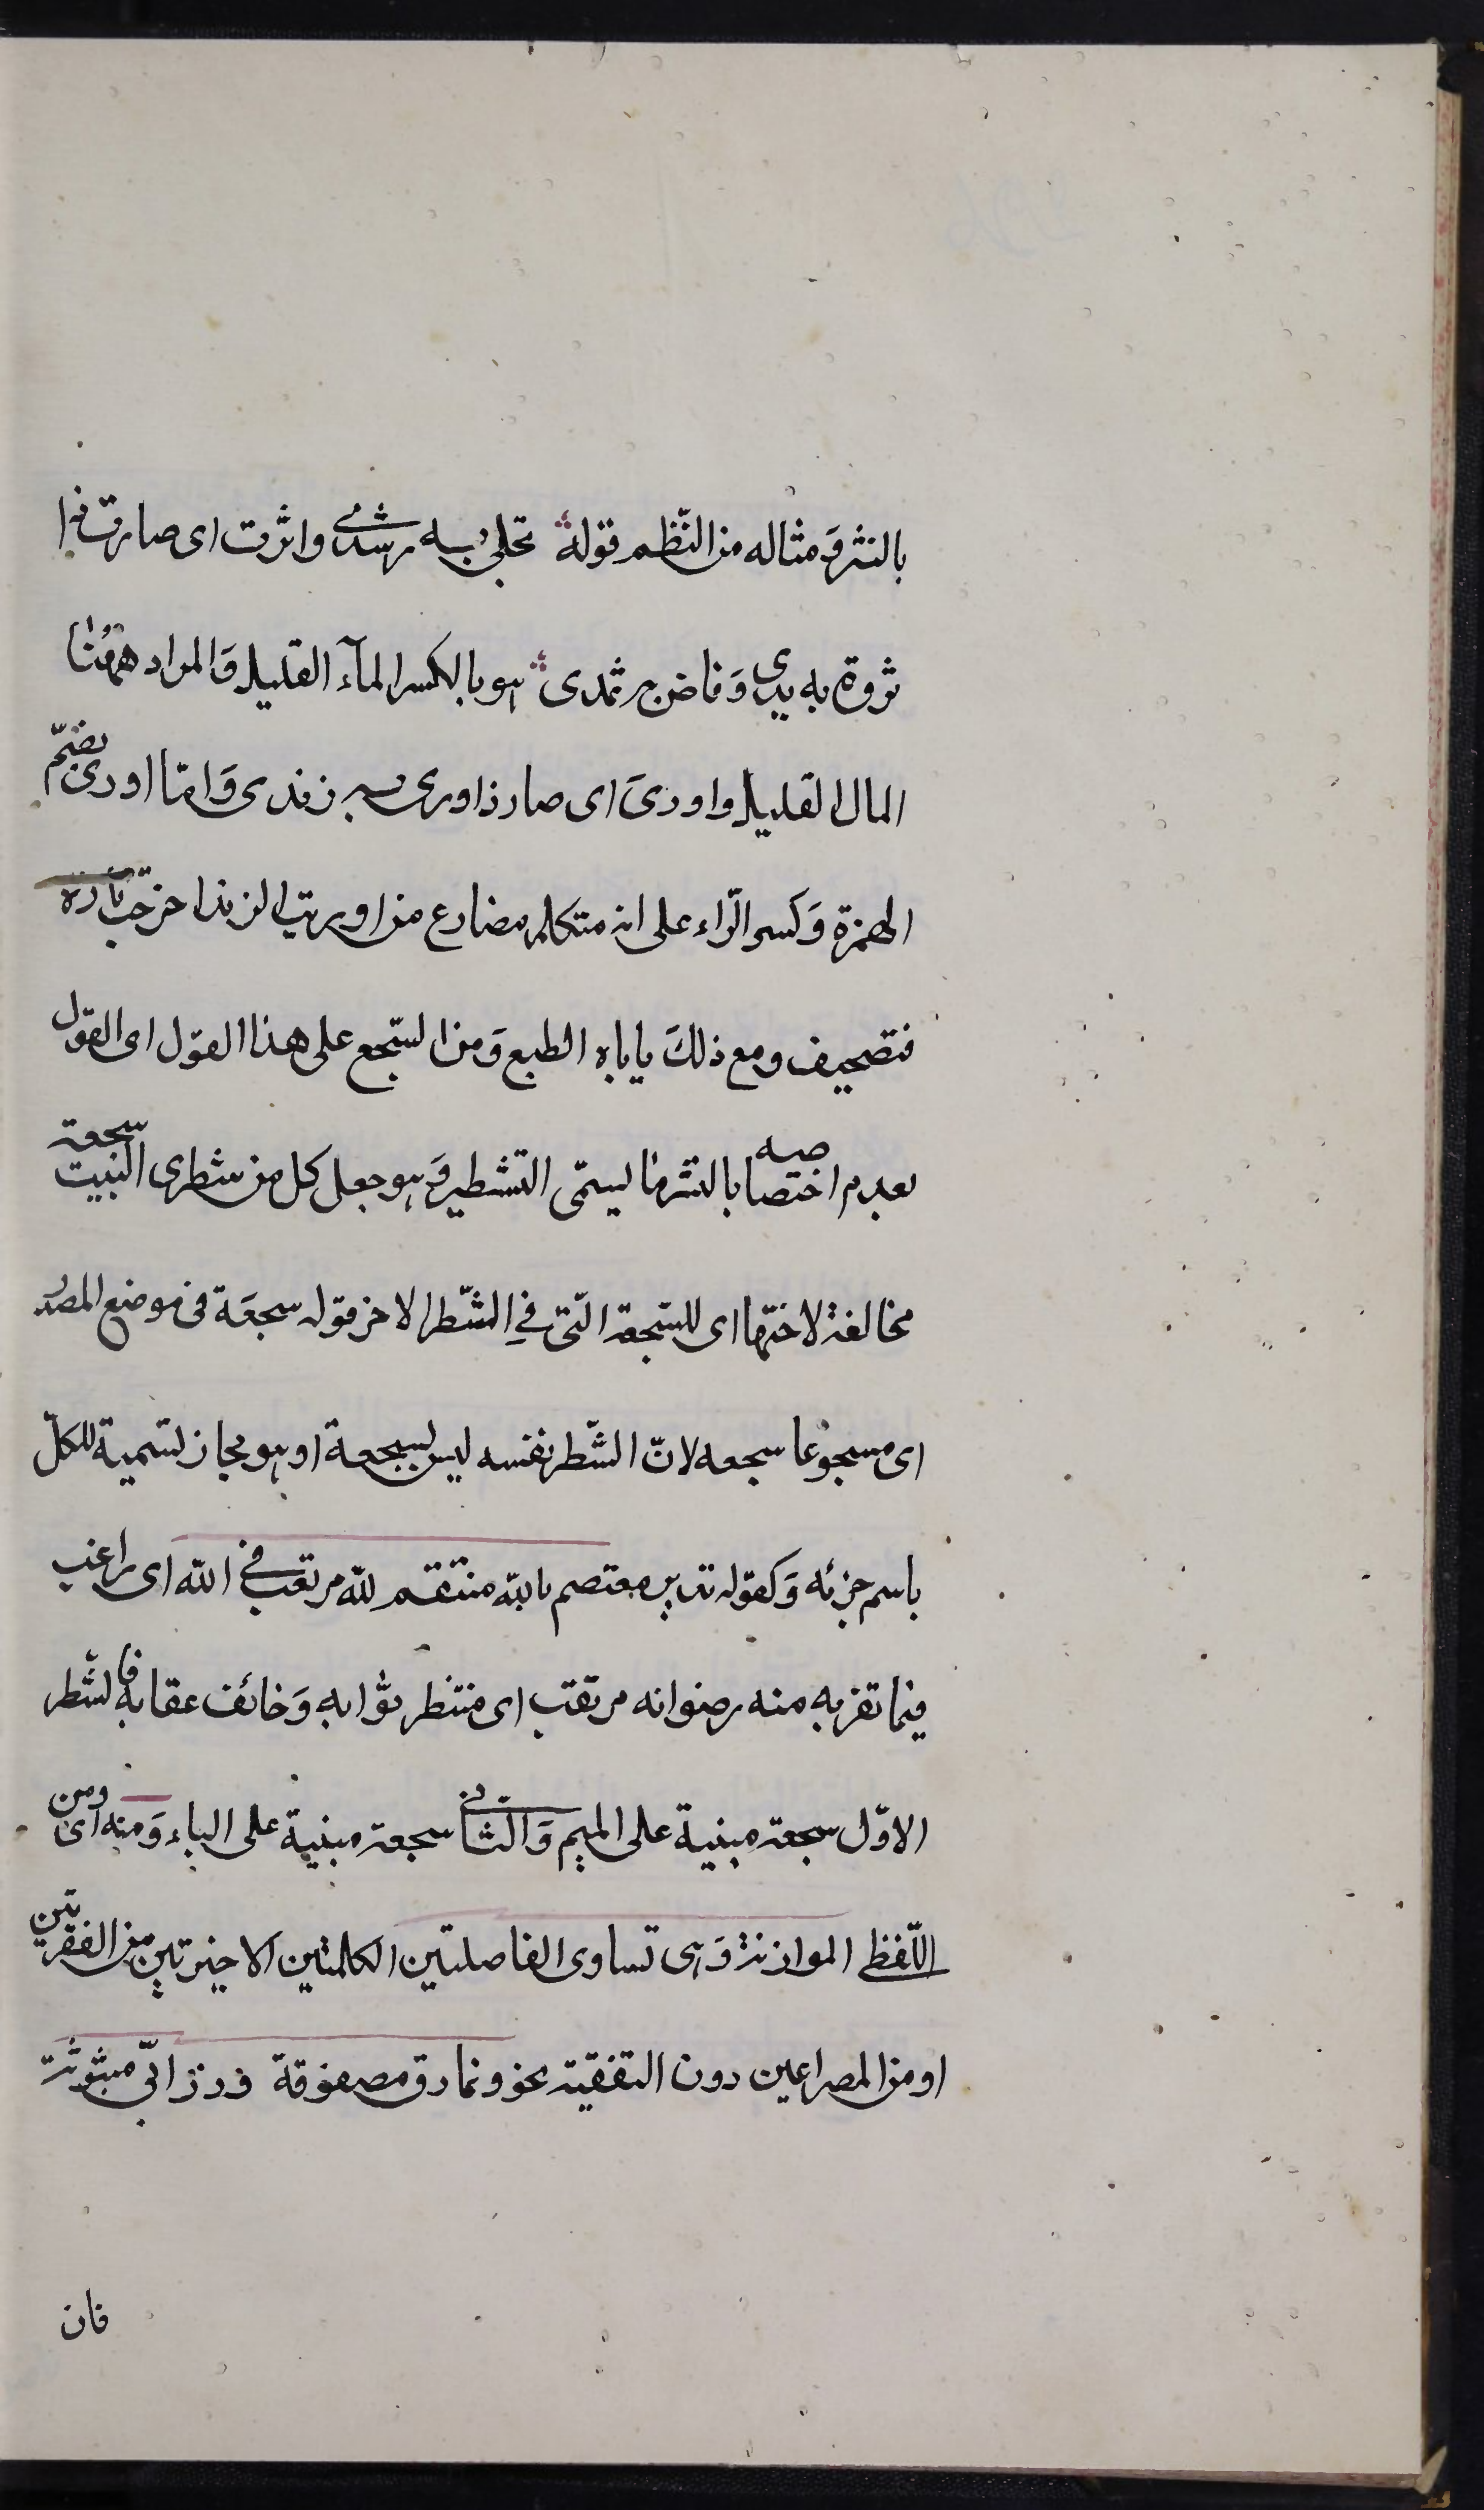 بالنثر وَمثاله من النّظم قوله تجلى به رشدى واثرت اى صارت ذا
ثروة به يدى وَفاض به ثمدى هو بالكسر المآء القليل وَالمراد ههُنا
المال القليل واورىَ اى صار ذا ورى به زندى وَامّا اورى بضمّ
الهمزة وَكسر الرّاء على انه متكلم مضارع من اوريت الزند اخرجت ناره
فتصحيف ومع ذلكَ ياباه الطبع وَمن السّجع على هذا القول اى القول
بعدم اختصاصه بالنثر ما يسمّى التشطير وَهو جعل كل من شطرى البيت سجعة
مخالفة لاختها اى للسّجعة الّتى فى الشّطر الاخر قوله سجعَة فى موضع المصدر
اى مسجوعا سجعه لانّ الشّطر نفسه ليس بسجعة او هو مجاز تسمية للكلّ
باسم جزئه وَكقوله تدبير معتصم بالله منتقم لله مرتغب فى الله اى راغب
فيما يقربه منه رضوانه مرتقب اى منتظر ثوابه وَخائف عقابه فالشّطر
الاوّل سجعة مبنية على الميم وَالثّانى سجعة مبنية على الباء وَمنه اى ومن
اللّفظ الموازنة وَهى تساوى الفاصلتين الكلمتين الاخيرتين من الفقرتين
او من المصراعين دون التقفية نحو ونمارق مصفوفة وزرابىّ مبثوثة
فان